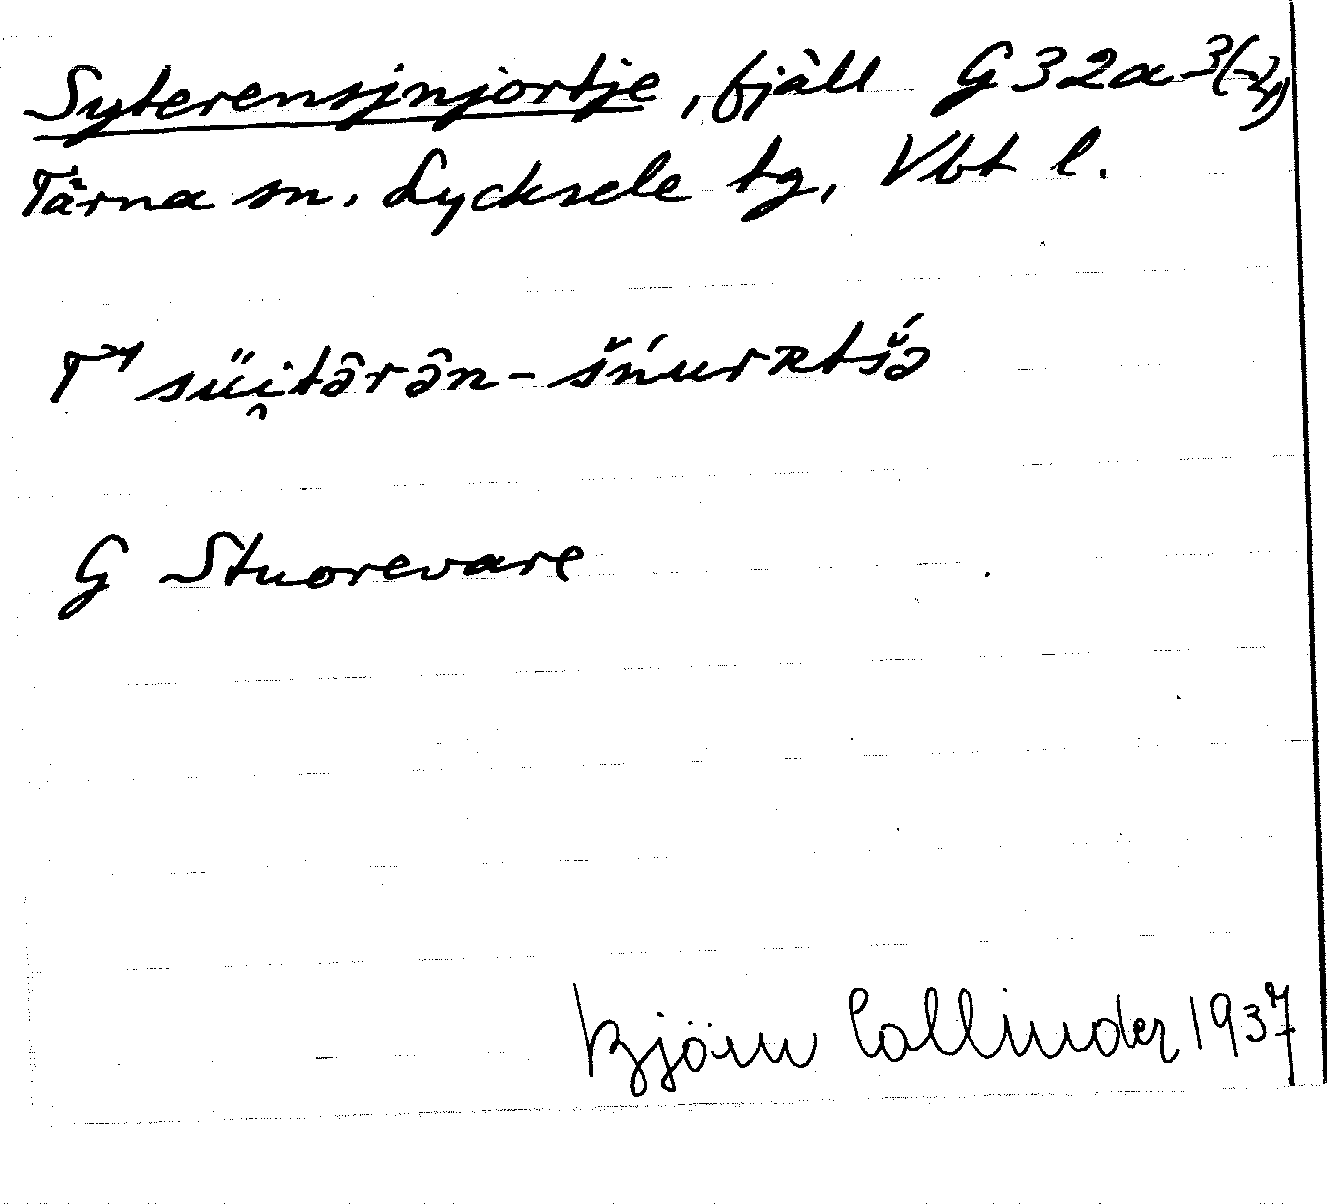 Syterensjnjortje, fjäll G 32a-3(-4)
Tärna sn. Lycksele tg, Vbt l.
T⁴ süi̯târân-šńurRtšə́
G Stuorevare
Björn Collinder 1937